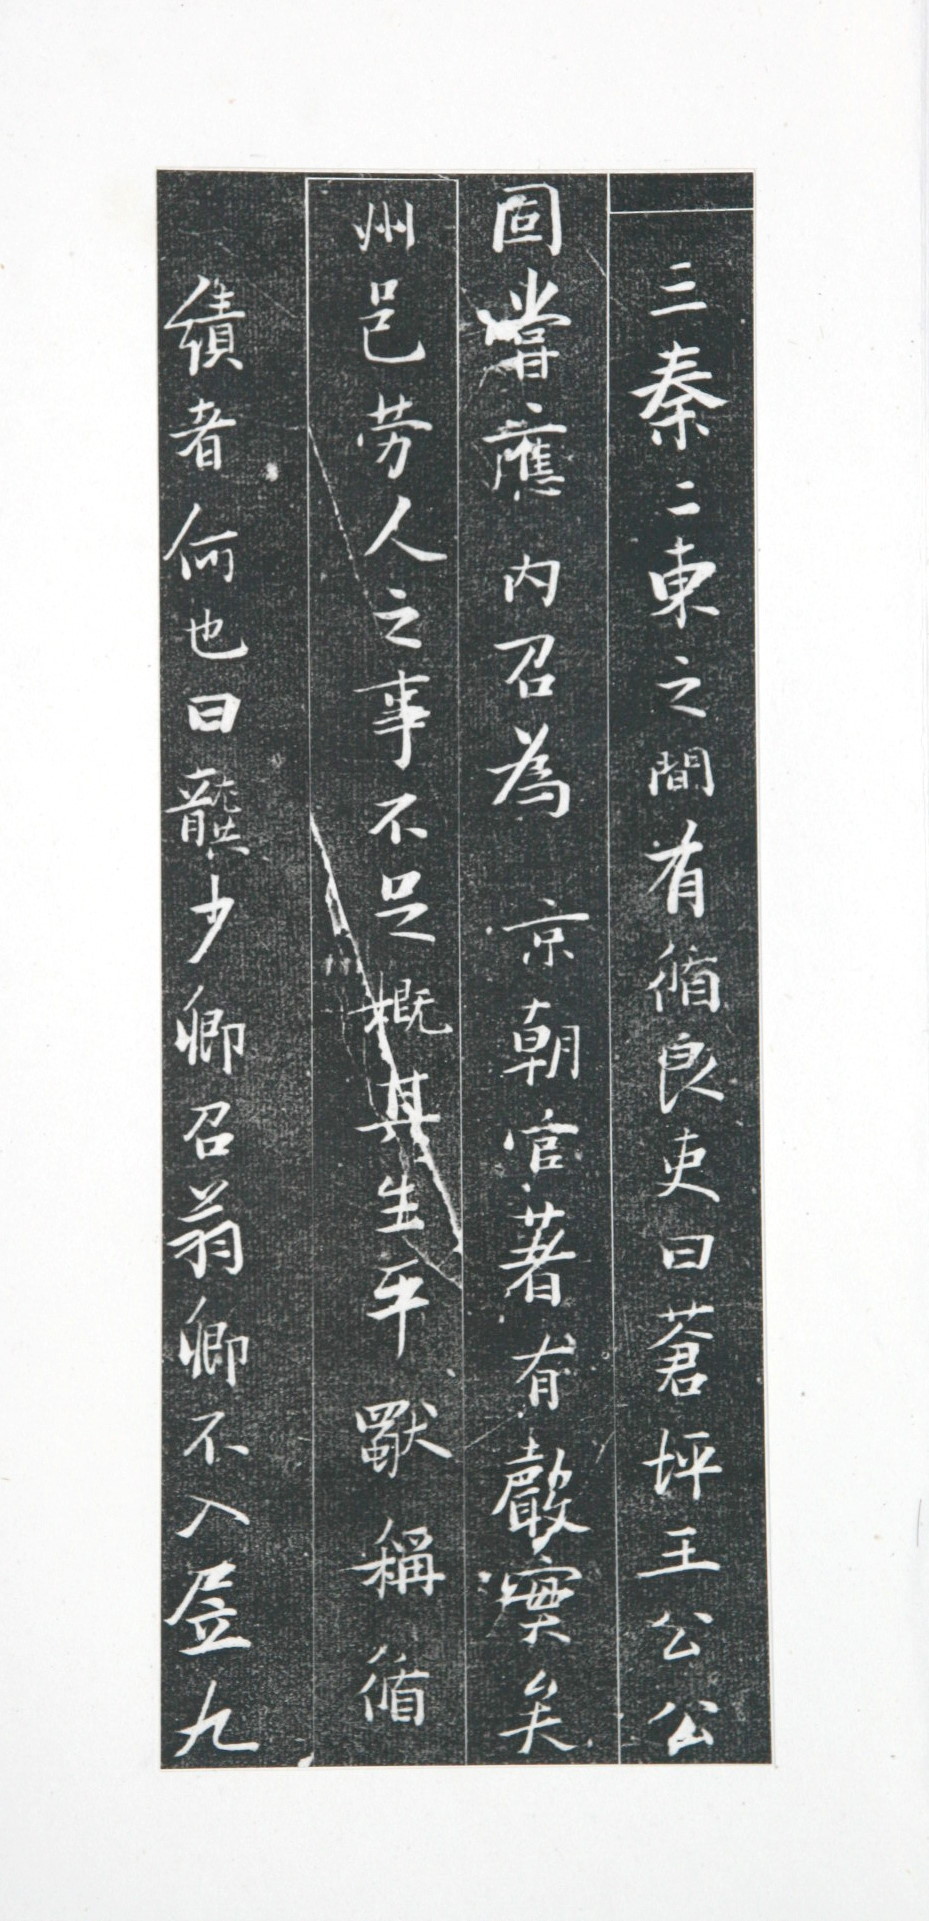 三秦二東之間有循良吏曰蒼坪王公公
固嘗應內召為京朝官著有聲實矣
州邑勞人之事不足概其生平獸稱循
績者何也曰龔少卿召翁卿不入 九